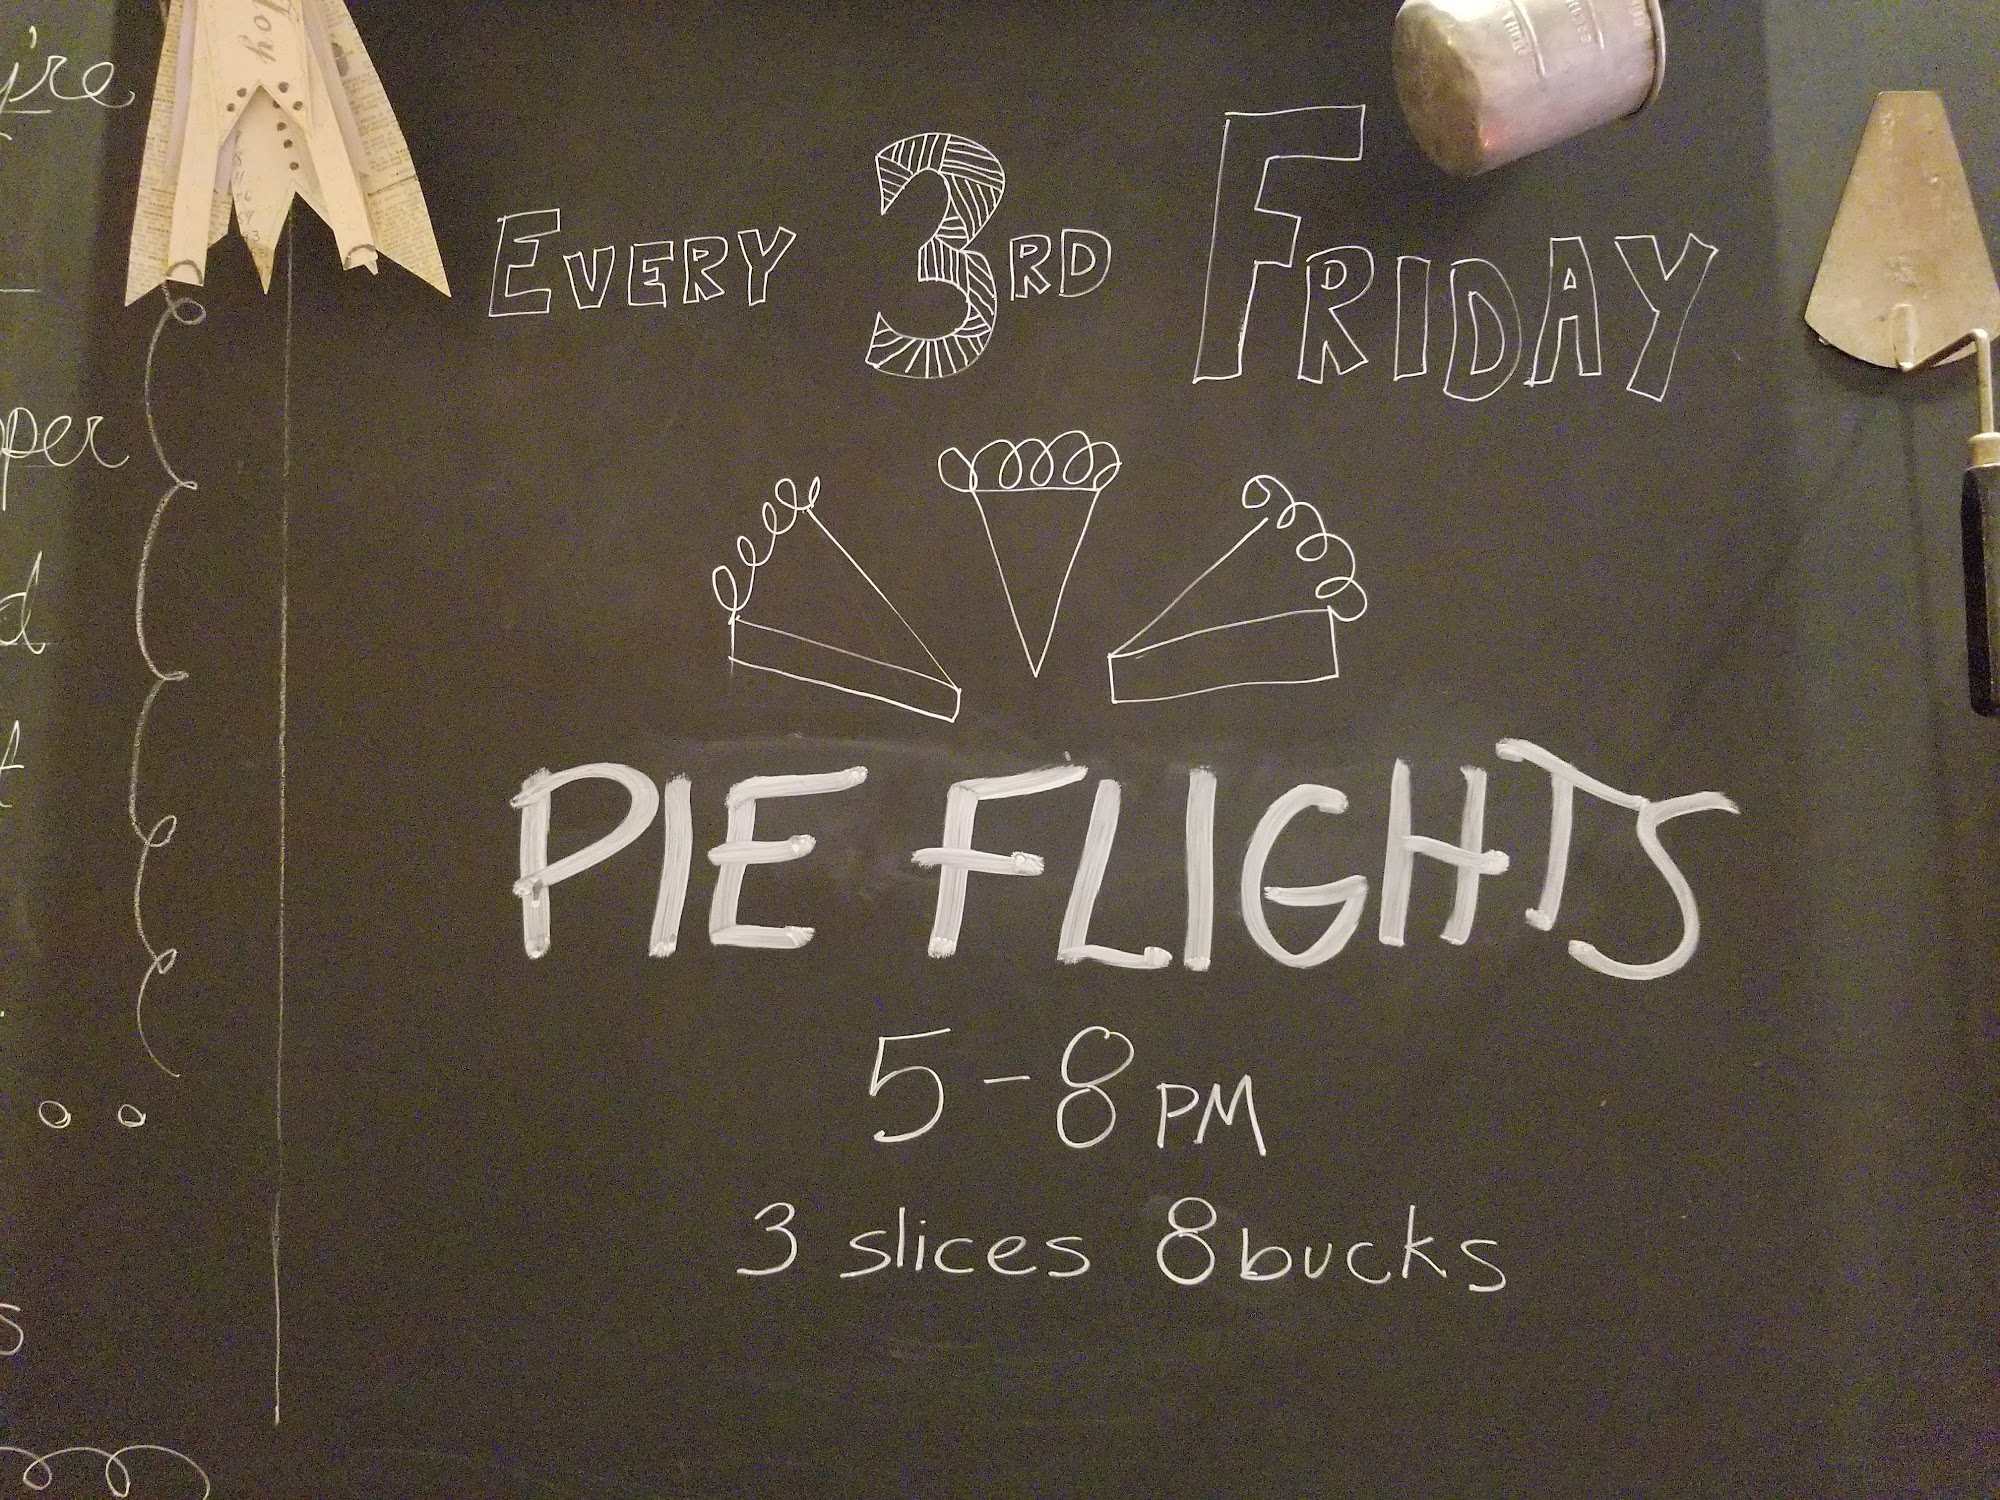 EVERY 3RD FRIDAY
PIE FLIGHTS
5-8 PM
3 slices 8 bucks